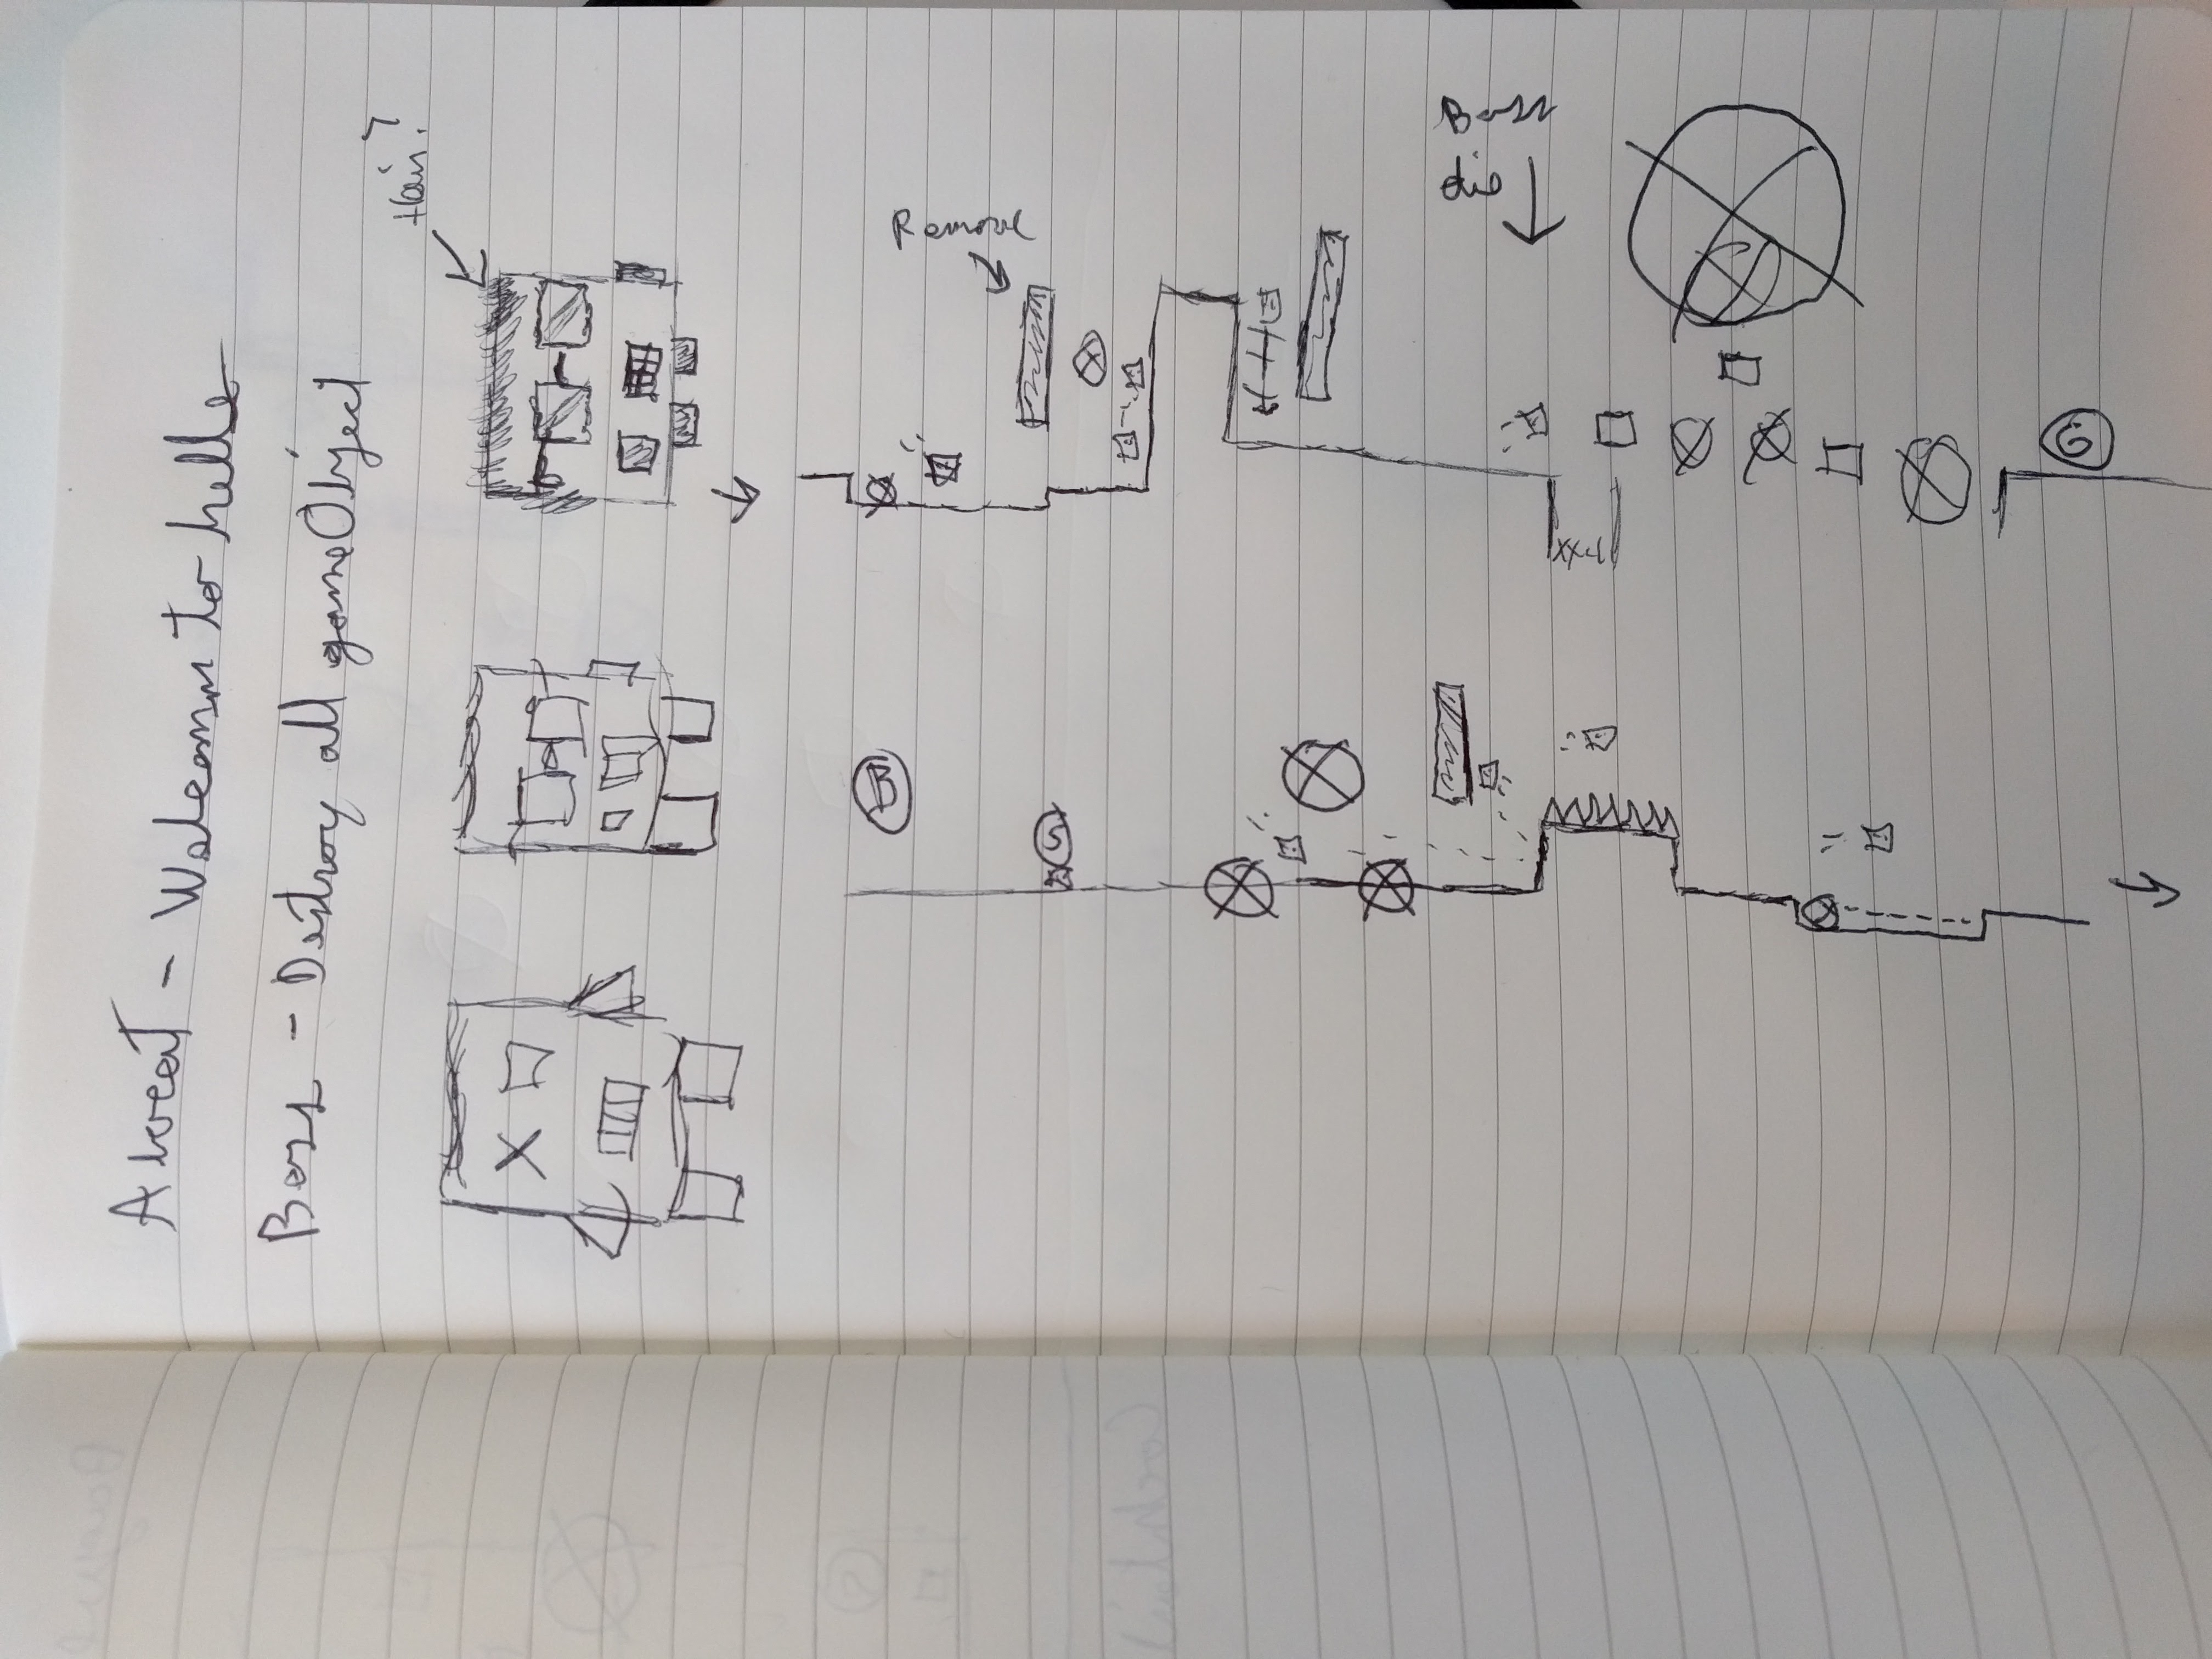 Ahvest - Welcomm to helle
Boss - Destroy all gameObject
Hair?
Remove
B
S
Boss
die
G